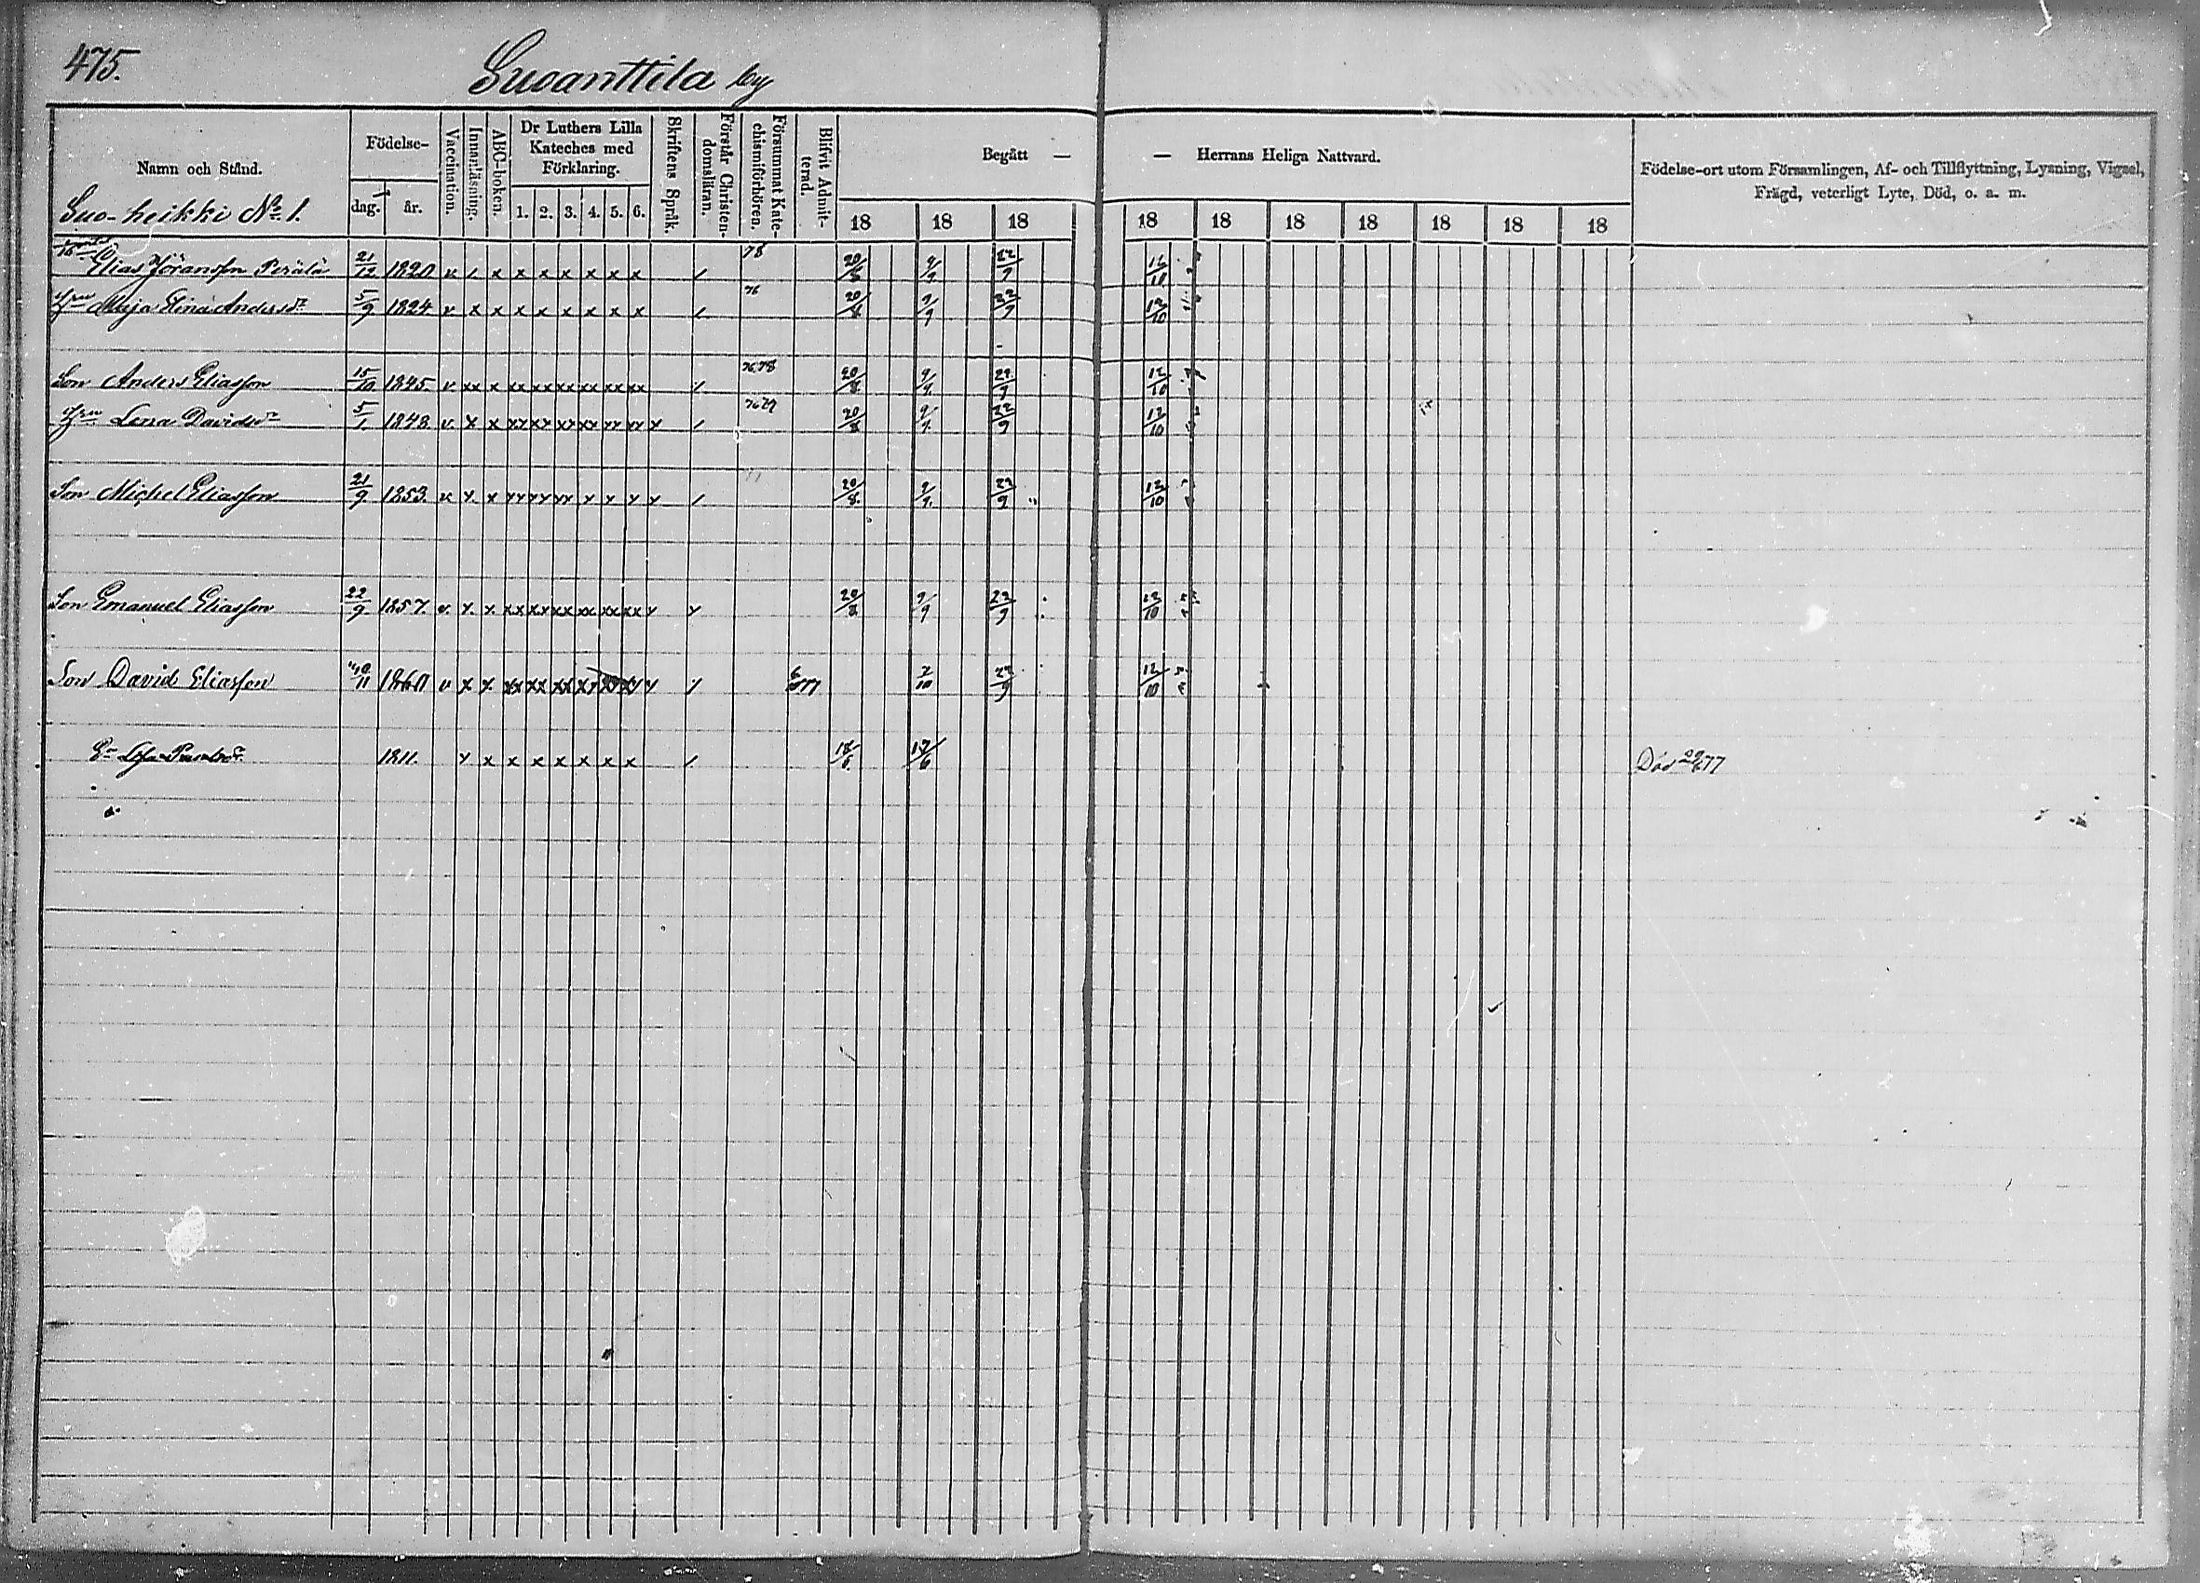 475.
Susanttila by
Namn och Stånd.
Födelse-
dag.
år.
Vaccination.
Innanläsning.
ABC-boken.
Dr Luthers Lilla Kateches med Förklaring.
1. 2. 3. 4. 5. 6.
Skriftens Språk.
Förstår Christendomsläran.
Försummat Katechismiförhören.
Blifvit Admitterad.
Begått — — Herrans Heliga Nattvard.
18 18 18 18 18 18 18 18 18 18
Födelse-ort utom Församlingen, Af- och Tillflyttning, Lysning, Vigsel,
Frägd, veterligt Lyte, Död, o. a. m.
Suo-heikki No 1.
Elias Jöransson Perälä 21/12 1820 v / x x x x x x x / 78 20/8 9/9 22/9 12/10
Maja Elina Andersdr 5/9 1824 v x x x x x x x x / 76 20/8 9/9 22/9 12/10
Son Anders Eliasson 15/10 1845 v xx x xx xx xx xx xx xx / 76.78 20/8 9/9 22/9 12/10
Lena Davidsdr 5/1 1848 v x x xx xx xx xx xx xx x / 20/8 9/9 22/9 12/10
Son Michel Eliasson 21/9 1853. v x x xx xx xx x x x x / 20/8 9/9 22/9 12/10
Son Emanuel Eliasson 22/9 1857. v x x xx xx xx xx xx xx x x 20/8 9/9 22/9 12/10
Son David Eliasson 1860 v x x xx xx xx x x 77 7/10 22/9 12/10
1811. x x x x x x x x / 17/6 Död 29/6 77